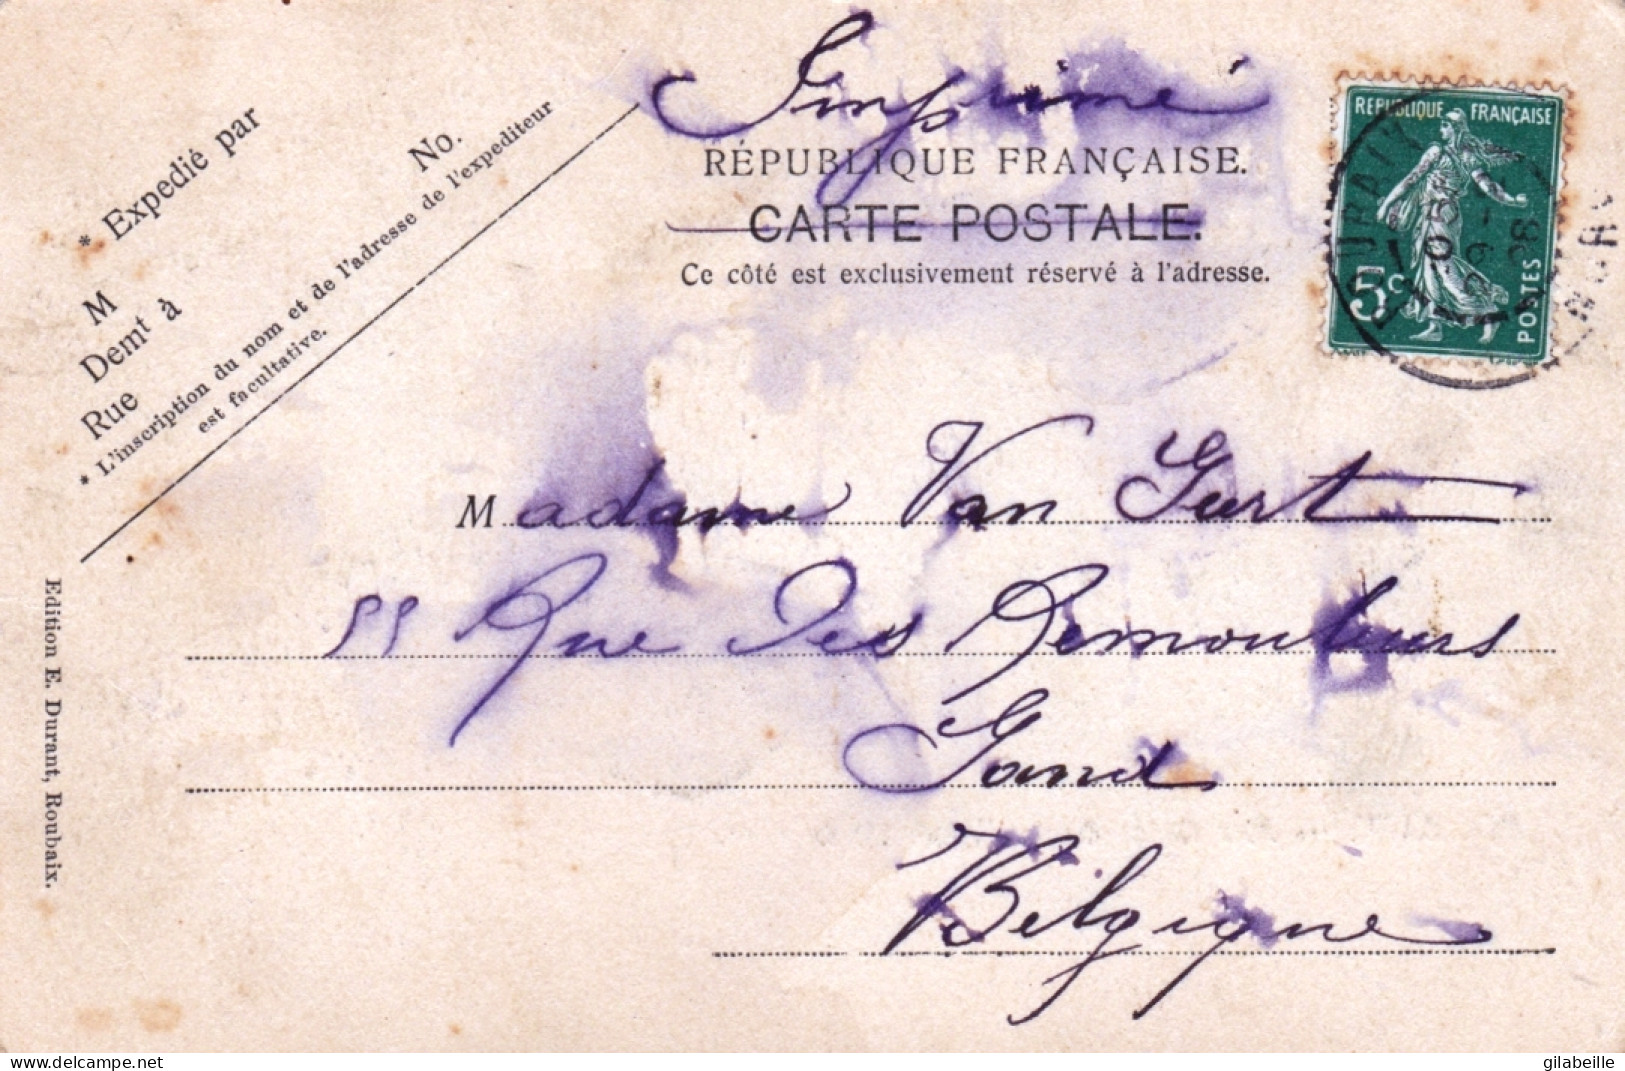 Imprimé
RÉPUBLIQUE FRANÇAISE.
CARTE POSTALE.
Ce côté est exclusivement réservé à l'adresse.
* Expedié par
No.
M
Demt à
Rue
* L'inscription du nom et de l'adresse de l'expediteur
est facultative.
REPUBLIQUE FRANÇAISE
5c
POSTES
Madame Van Gurt
55 Rue Des Remouleurs
Gand
Belgique
Edition E. Durant, Roubaix.
www.delcampe.net
gilabeille